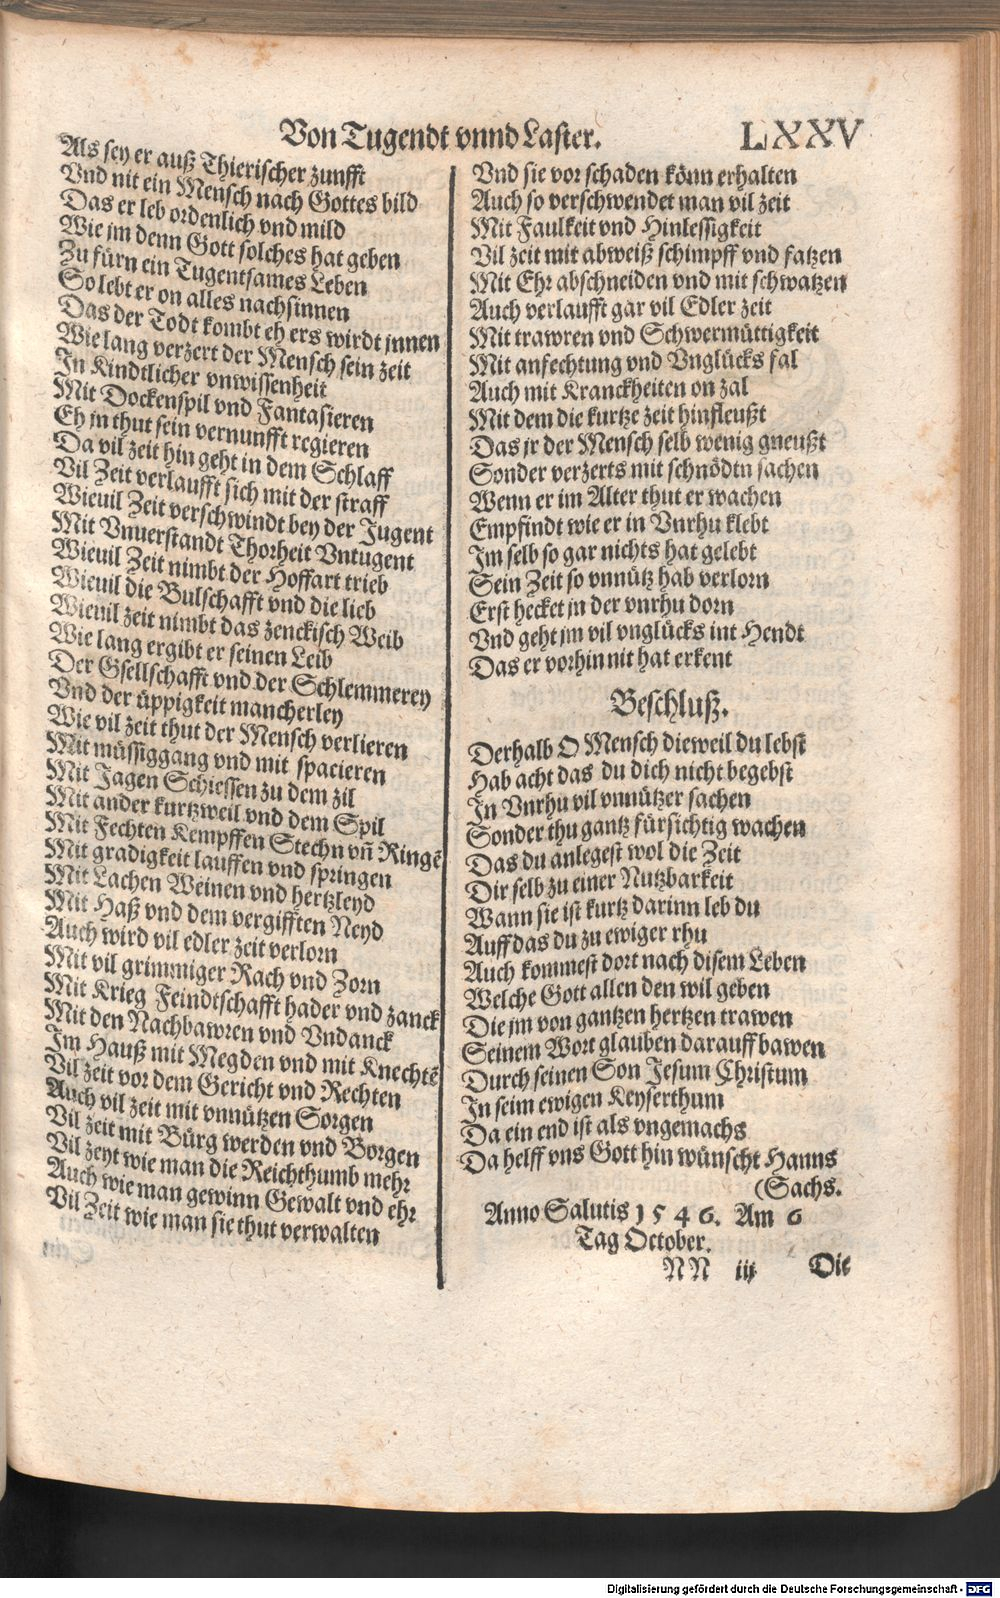 Von Tugendt vnnd Laster.
LXXV
Als sey er auß Thierischer zunfft
Vnd nit ein Mensch nach Gottes bild
Das er leb ordenlich vnd mild
Wie jm denn Gott solches hat geben
Zu fürn ein Tugentsames Leben
So lebt er on alles nachsinnen
Das der Todt kombt eh ers wirdt jnnen
Wie lang verzert der Mensch sein zeit
In Kindtlicher vnwissenheit
Mit Dockenspil vnd Fantasieren
Eh jn thut sein vernunfft regieren
Da vil zeit hin geht in dem Schlaff
Vil Zeit verlaufft sich mit der straff
Wieuil Zeit verschwindt bey der Jugent
Mit Vnuerstandt Thorheit Vntugent
Wieuil Zeit nimbt der Hoffart trieb
Wieuil die Bulschafft vnd die lieb
Wieuil zeit nimbt das zenckisch Weib
Wie lang ergibt er seinen Leib
Der Gsellschafft vnd der Schlemmerey
Vnd der üppigkeit mancherley
Wie vil zeit thut der Mensch verlieren
Mit müssiggang vnd mit spacieren
Mit Jagen Schiessen zu dem zil
Mit ander kurtzweil vnd dem Spil
Mit Fechten Kempffen Stechn vñ Ringẽ
Mit gradigkeit lauffen vnd springen
Mit Lachen Weinen vnd hertzleyd
Mit Haß vnd dem vergifften Neyd
Auch wird vil edler zeit verlorn
Mit vil grimmiger Rach vnd Zorn
Mit Krieg Feindtschafft hader vnd zanck
Mit den Nachbawren vnd Vndanck
Im Hauß mit Megden vnd mit Knechtẽ
Vil zeit vor dem Gericht vnd Rechten
Auch vil zeit mit vnnützen Sorgen
Vil zeit mit Bürg werden vnd Borgen
Vil zeyt wie man die Reichthumb mehr
Auch wie man gewinn Gewalt vnd ehr
Vil Zeit wie man sie thut verwalten
Vnd sie vor schaden könn erhalten
Auch so verschwendet man vil zeit
Mit Faulkeit vnd Hinlessigkeit
Vil zeit mit abweiß schimpff vnd fatzen
Mit Ehr abschneiden vnd mit schwatzen
Auch verlaufft gar vil Edler zeit
Mit trawren vnd Schwermüttigkeit
Mit anfechtung vnd Vnglücks fal
Auch mit Kranckheiten on zal
Mit dem die kurtze zeit hinfleußt
Das jr der Mensch selb wenig gneußt
Sonder verzerts mit schnödtn sachen
Wenn er im Alter thut er wachen
Empfindt wie er in Vnrhu klebt
Im selb so gar nichts hat gelebt
Sein Zeit so vnnütz hab verlorn
Erst hecket jn der vnrhu dorn
Vnd geht jm vil vnglücks int Hendt
Das er vorhin nit hat erkent
Beschluß.
Derhalb O Mensch dieweil du lebst
Hab acht das du dich nicht begebst
In Vnrhu vil vnnützer sachen
Sonder thu gantz fürsichtig wachen
Das du anlegest wol die Zeit
Dir selb zu einer Nutzbarkeit
Wann sie ist kurtz darinn leb du
Auff das du zu ewiger rhu
Auch kommest dort nach disem Leben
Welche Gott allen den wil geben
Die jm von gantzen hertzen trawen
Seinem Wort glauben darauff bawen
Durch seinen Son Jesum Christum
In seim ewigen Keyserthum
Da ein end ist als vngemachs
Da helff vns Gott hin wünscht Hanns
(Sachs.
Anno Salutis 1546. Am 6
Tag October.
NN iij Die
Digitalisierung gefördert durch die Deutsche Forschungsgemeinschaft - DFG